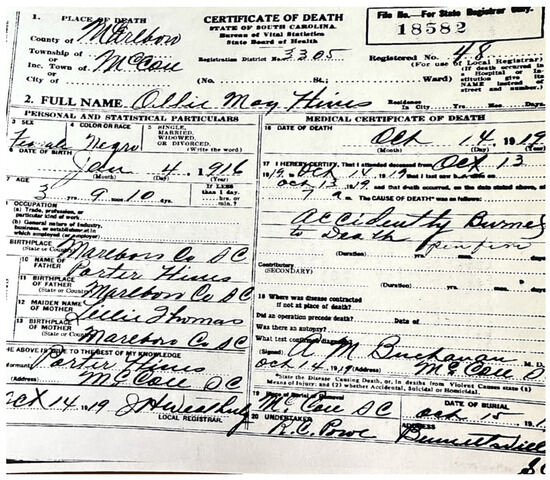 1. PLACE OF DEATH
County of Marlboro
Township of
or
Inc. Town of McColl
or
City of (No. St.; Ward)
CERTIFICATE OF DEATH
STATE OF SOUTH CAROLINA
Bureau of Vital Statistics
State Board of Health
Registration District No. 3305
File No.—For State Registrar Only.
18582
Registered No. 48
(For use of Local Registrar)
(If death occurred in
Hospital or
Institution give its
NAME instead of
street and number.)
2. FULL NAME Ollie May Hines
Residence
In City Yrs. Mos. Days.
PERSONAL AND STATISTICAL PARTICULARS
3 SEX
Female
4 COLOR OR RACE
Negro
5 SINGLE,
MARRIED,
WIDOWED,
OR DIVORCED.
(Write the word)
6 DATE OF BIRTH
Jan 4 1916
(Month) (Day) (Year)
7 AGE
3 yrs. 9 mos. 10 ds.
If LESS
than 1 day.
hrs. or
min.?
8 OCCUPATION
(a) Trade, profession, or
particular kind of work.
(b) General nature of Industry,
business, or establishment in
which employed (or employer)
BIRTHPLACE
(State or County) Marlboro Co SC
10 NAME OF
FATHER Porter Hines
11 BIRTHPLACE
OF FATHER
(State or County) Marlboro Co SC
12 MAIDEN NAME
OF MOTHER
13 BIRTHPLACE
OF MOTHER
(State or County) Marlboro Co SC
THE ABOVE IS TRUE TO THE BEST OF MY KNOWLEDGE
(Informant) Porter Hines
(Address) McColl SC
Oct 14 19 J H Weatherly
LOCAL REGISTRAR.
MEDICAL CERTIFICATE OF DEATH
16 DATE OF DEATH
Oct 14 1919
(Month) (Day) (Year)
17 I HEREBY CERTIFY, That I attended deceased from Oct 13
19 Oct 14 1919 that I last saw
Oct 13 19 and that death occurred, on the date stated above, at
The CAUSE OF DEATH was as follows:
Accidently Burned
to Death
(Duration) yrs. mos. ds.
Contributory
(SECONDARY)
(Duration) yrs. mos. ds.
18 Where was disease contracted
if not at place of death?
Did an operation precede death? Date of
Was there an autopsy?
What test confirmed diagnosis?
(Signed) A M Buchanan M. D.
Oct 14 1919 (Address) McColl S
State the Disease Causing Death, or, in deaths from Violent Causes state (1)
Means of Injury; and (2) whether Accidental, Suicidal or Homicidal.
19 Place of Burial or Removal
McColl SC
DATE OF BURIAL
Oct 15 19
20 UNDERTAKER
R. C. Powe
ADDRESS
Bennettsville
SC